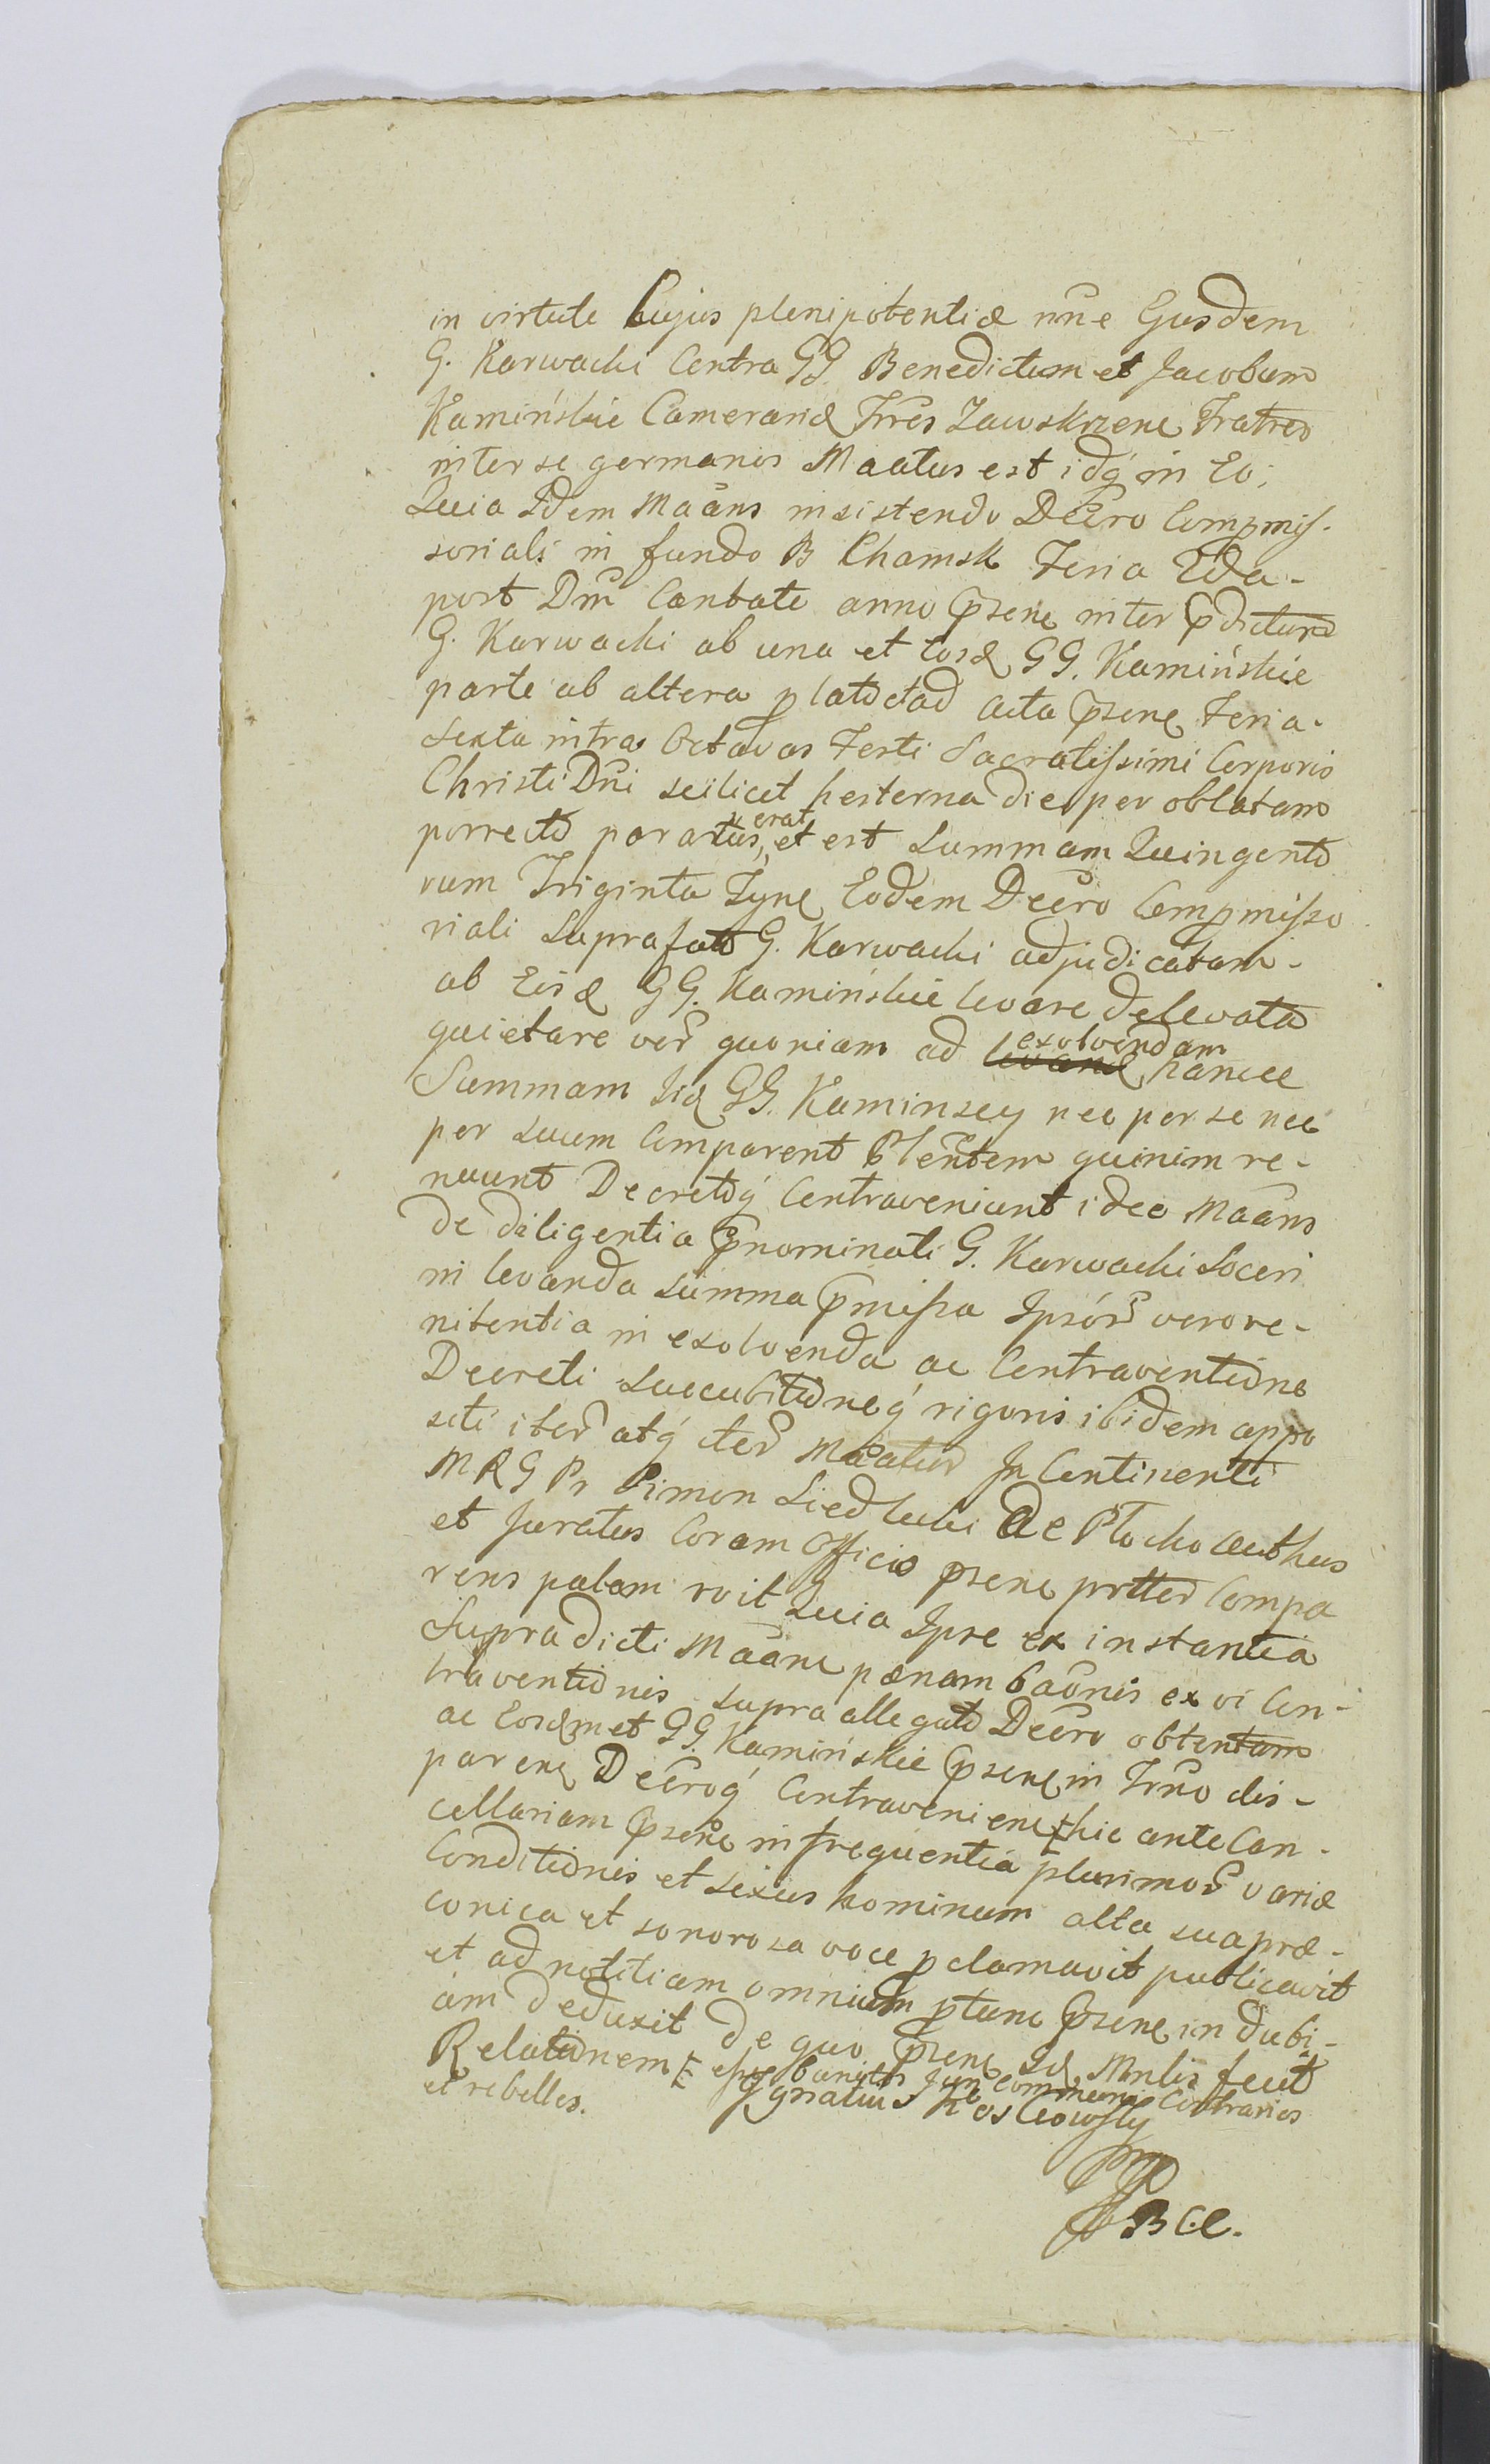 in virtute Cujus plenipotentiæ nu͞e Ejusdem
G. Karwacki Contra GG. Benedictum et Jacobum
Kamińskie Camerariæ Trres Zawskrzene Fratres
inter se germanos Maatus est idq́ in Eo;
Quia Idem Maans insistendo Decro Compmis-
soriali in fundo B Chamsk Feria 2da-
post Dm̃ Cantate anno psene inter pdictum
G. Karwacki ab una et Eosd GG. Kamińskie
parte ab altera p lato et ad acta psene Feria-
Sexta intra Octavas Festi Sacratissimi Corporis
Christi Dni scilicet hesterna die per oblatam
porrecto paratus, erat, et est Summam Quingento
rum Triginta Tyne Eodem Decro Compmisso
riali Suprafato G. Karwacki adjudicatam-
ab Eisd GG. Kamińskie levare de levata
quietare ver̃ quoniam ad exolvendam hancce
Summam Iid GG. Kaminscy nec per se nec
per Suum Comparent Plentem quinim re-
nuunt Decretoq́ Contraveniunt ideo Maans
de diligentia pnominati G. Karwacki Soceri
in levanda Summa pmissa Ipsor̃ vero re-
nitentia in exolvenda ac Contraventione
Decreti Succubitioneq́ rigoris ibidem appo
siti iter̃ atq́ iter̃ Maatur In Continenti
M R G Pr Simon Siedlecki de Plocko authus
et Juratus Coram Officio psene prtter Compa
rens palam roit Quia Ipse ex instantia
Supradicti Maane pœnam baõnis ex vi Con-
traventionis supra allegato Decro obtentam
ac Eosdmet GG. Kamińskie psene in Trno dis-
parene Decroq́ Contraveniene hic ante Can-
cellariam psene in frequentia plurimor̃ variæ
Conditionis et sexus hominum alta sua præ-
conica et sonorosa voce pclamavit publicavit
et ad notitiam omnium ptunc psene indubi-
am deduxit de quo psene Sd Mnlis fecit
Relationem esse banitos Juri Communi Contrarios
et rebelles. Ignatius Kosciowsky
B C.